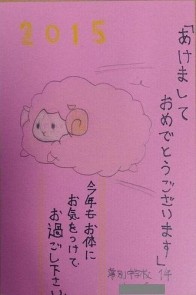 2015
「あけまして
おめでとうございます」
今年もお体に
お気をつけて
お過ごし下さい